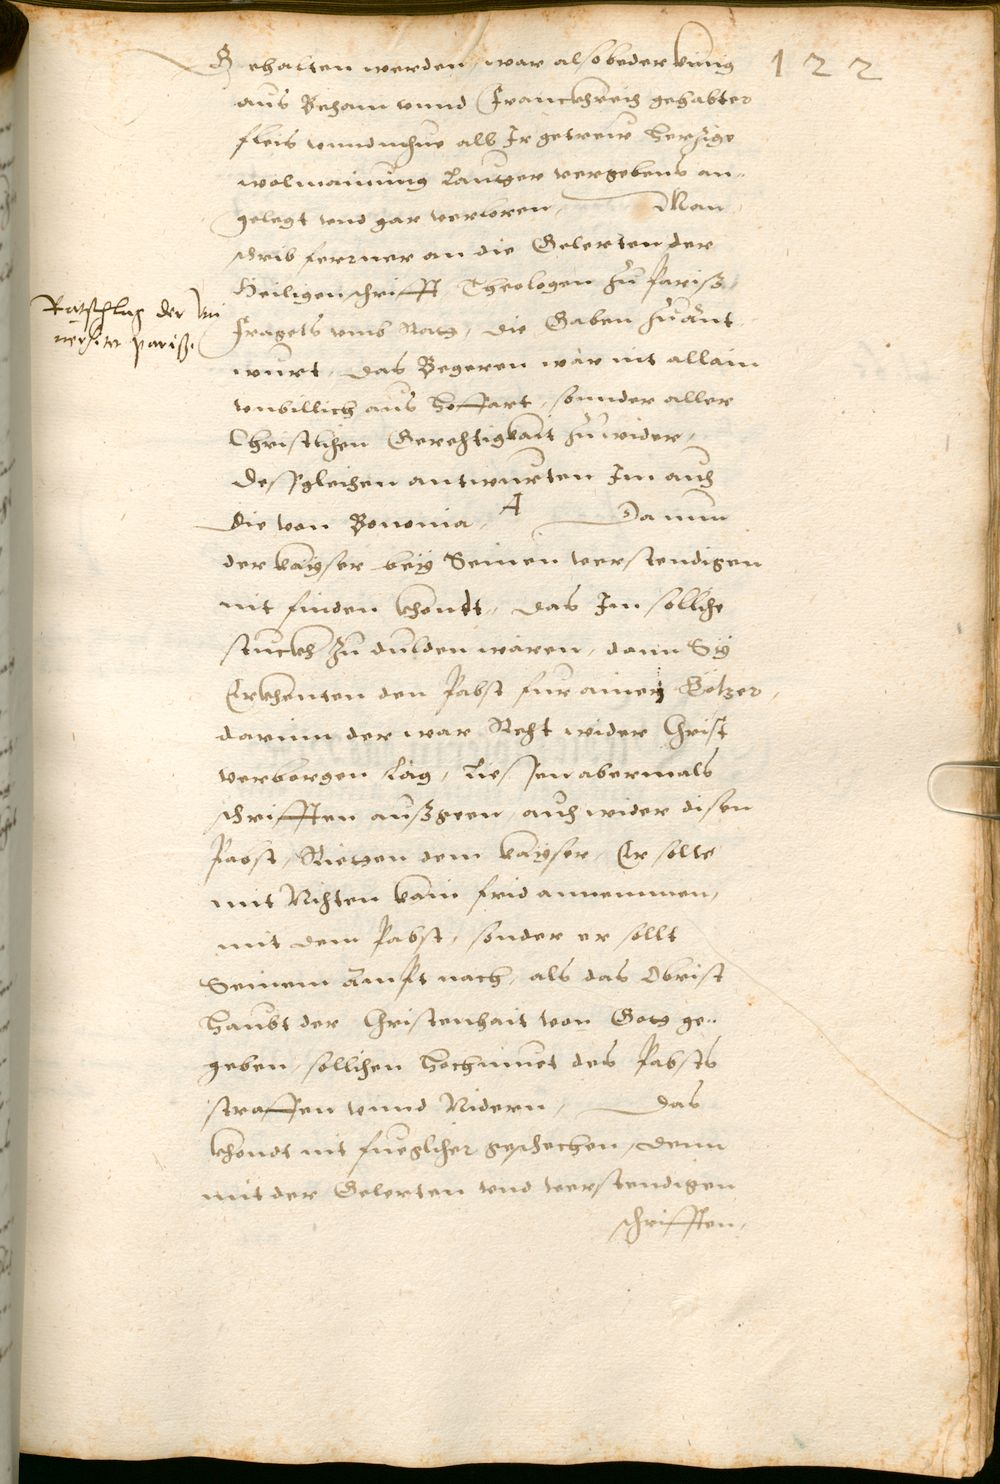 122
Gehalten werden, war also beder künig
aus Beham vnnd Franckhreich gehabter
fleis vnnd muhue all Ir getrew hertzige
wolmainung lautter vergebens an-
gelegt vnd gar verloren, Man
schrib ferrner an die Gelerten der
Heiligen schrifft Theologen zu Pariß,
Ratschlag der Vni
uersitet pariß.
fragets vmb Rath, die Gaben zu ant
wurt, das Begeren wär nit allain
vnbillich aus hoffart, sonnder aller
Christlichen Gerechtigkait zuwider,
Deßgleichen antwurten Im auch
die von Bononia, A Da nun
der kayser bey Seinen verstendigen
nit finden khondt, das Im solliche
stuckh zu dulden wären, dann Sy
Erkhenten den Pabst fur ainen Götzen,
darinn der war Recht wider Christ
verborgen läg, Liessen abermals
schrifften außgeen, auch wider disen
Pabst, Rietten dem kayser, Er solte
mit Nichten kain frid annemmen,
mit dem Pabst, sonder er sollt
Seinem ampt nach, als das Obrist
haubt der Christenhait von Gott ge-
geben, sollichen hochmuet des Pabsts
straffen vnnd Nidern, Das
khondt nit fueglicher geschechen, denn
mit der Gelerten vnd verstendigen
schrifften,